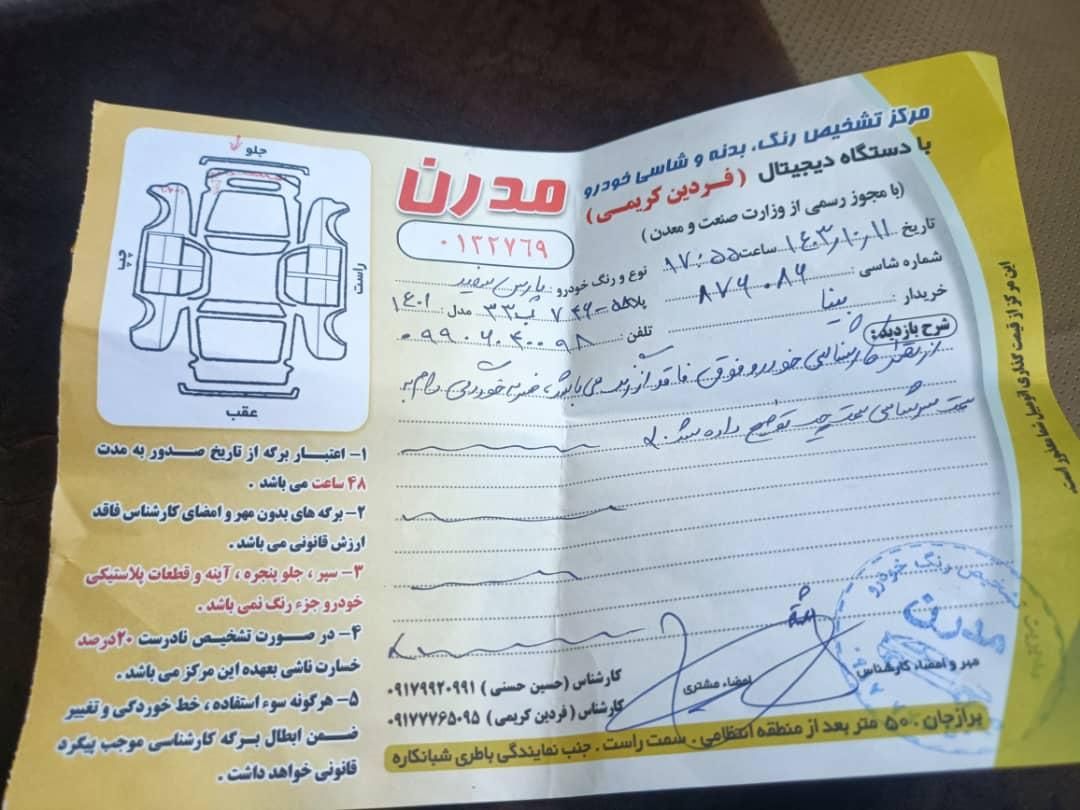 مرکز تشخیص رنگ، بدنه و شاسی خودرو
با دستگاه دیجیتال (فردین کریمی)
(با مجوز رسمی از وزارت صنعت و معدن)
مدرن
۰۱۳۲۷۶۹
تاریخ ۱۴۰۳/۱۰/۱۱ ساعت ۱۷:۵۵ نوع و رنگ خودرو: پارس سفید
شماره شاسی: ۸۷۶۰۸۶ پلاک ۵۸-۷۴۶ ب ۳۳ مدل: ۱۴۰۱
خریدار: بینا تلفن: ۰۹۹۰۶۰۴۰۰۹۸
شرح بازدید:
از نظر کارشناسی خودرو فوق فاقد رنگ می باشد، ضرب خوردگی
سرشاسی سمت چپ توضیح داده شد.
جلو
چپ
راست
عقب
۱- اعتبار برگه از تاریخ صدور به مدت
۴۸ ساعت می باشد.
۲- برگه های بدون مهر و امضای کارشناس فاقد
ارزش قانونی می باشد.
۳- سپر، جلو پنجره، آینه و قطعات پلاستیکی
خودرو جزء رنگ نمی باشد.
۴- در صورت تشخیص نادرست ۲۰درصد
خسارت ناشی بعهده این مرکز می باشد.
۵- هرگونه سوء استفاده، خط خوردگی و تغییر
ضمن ابطال برگه کارشناسی موجب پیگرد
قانونی خواهد داشت.
کارشناس (حسین حسنی) ۰۹۱۷۹۹۲۰۹۹۱
کارشناس (فردین کریمی) ۰۹۱۷۷۷۶۵۰۹۵
امضاء مشتری
مهر و امضاء کارشناس
تشخیص رنگ خودرو
مدرن
برازجان. ۵۰ متر بعد از منطقه انتظامی. سمت راست. جنب نمایندگی باطری شبانکاره
این مرکز از قیمت گذاری اتومبیل شما معذور است.